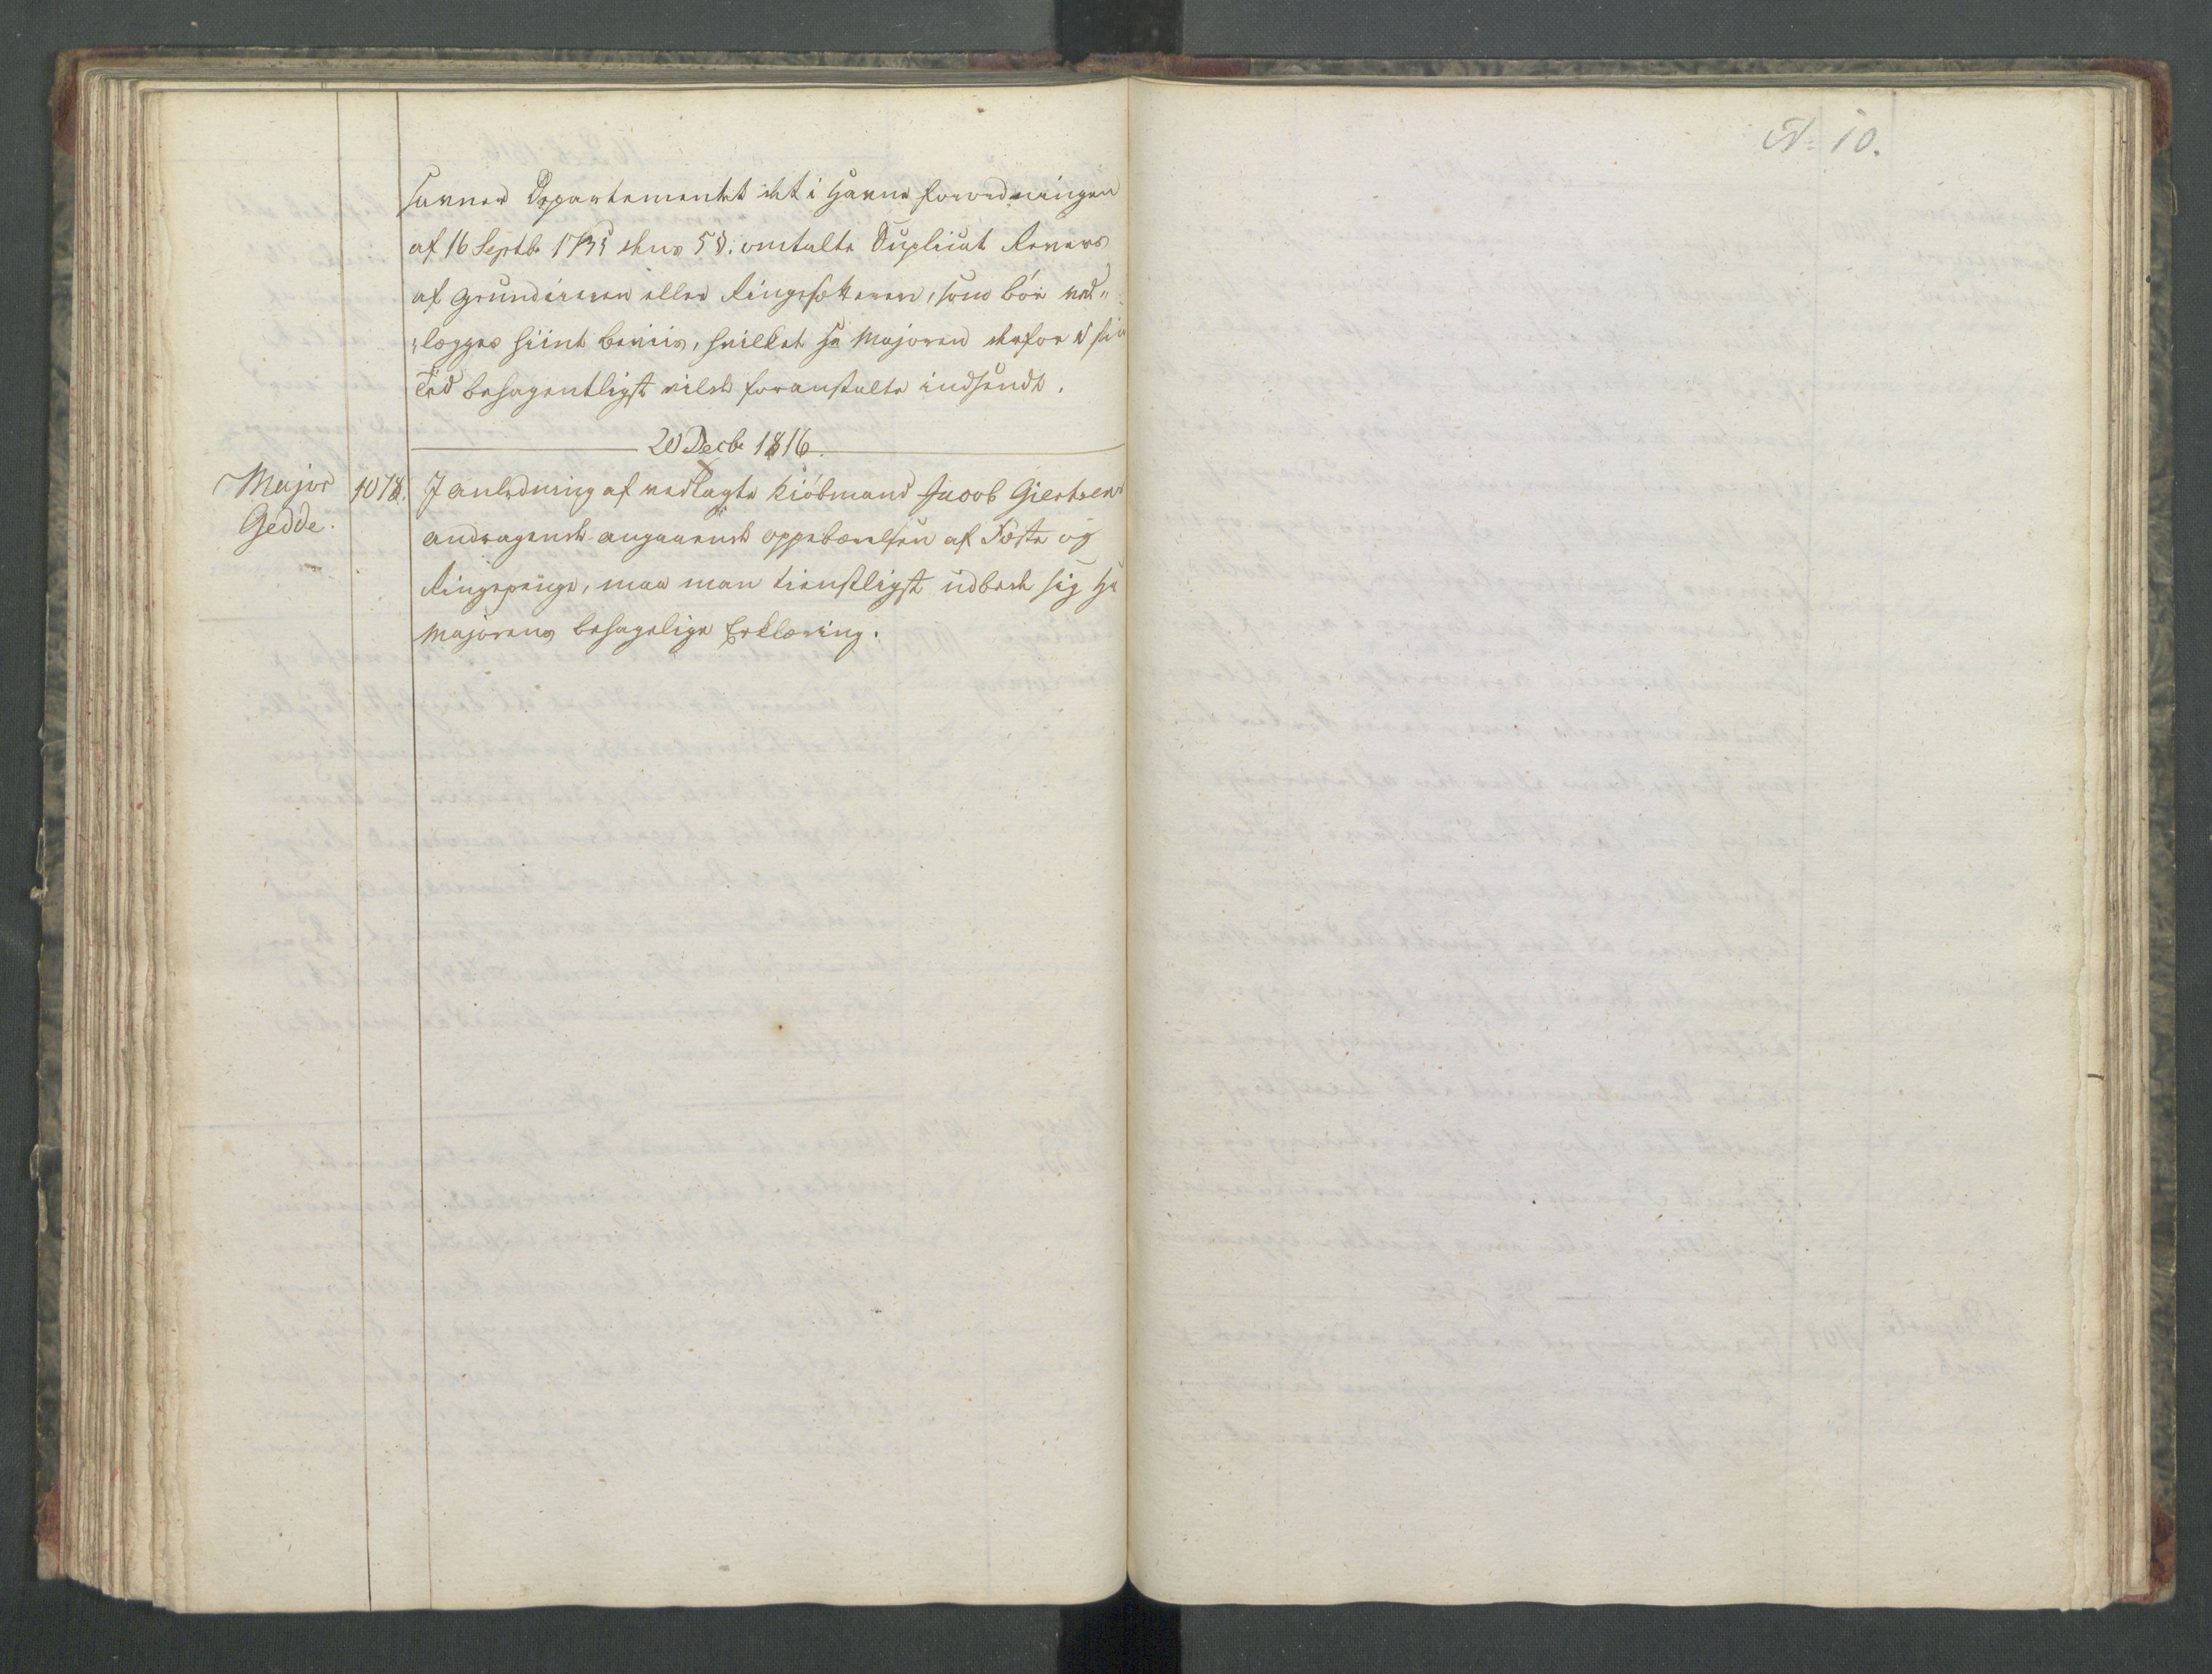 savner Departementet det i Havne forordningen
af 16 Septbr 1735 dens 5 §. omtalte Duplicat Revers
af Grundeieren eller Ringsætteren, som bör ved"
"lægges hiint Beviis, hvilket Hr Majoren derfor i sin
Tid behagentligst vilde foranstalte indsendt.
20 Decbr 1816.
Major
Gedde.
1078.
I anledning af vedlagte Kiöbmand Jacob Giertsens
andragende angaaende oppebærelsen af Fæste og
Ringepenge, maa man tienstligst udbede sig Hr
Majorens behagelige Erklæring.
No 10.